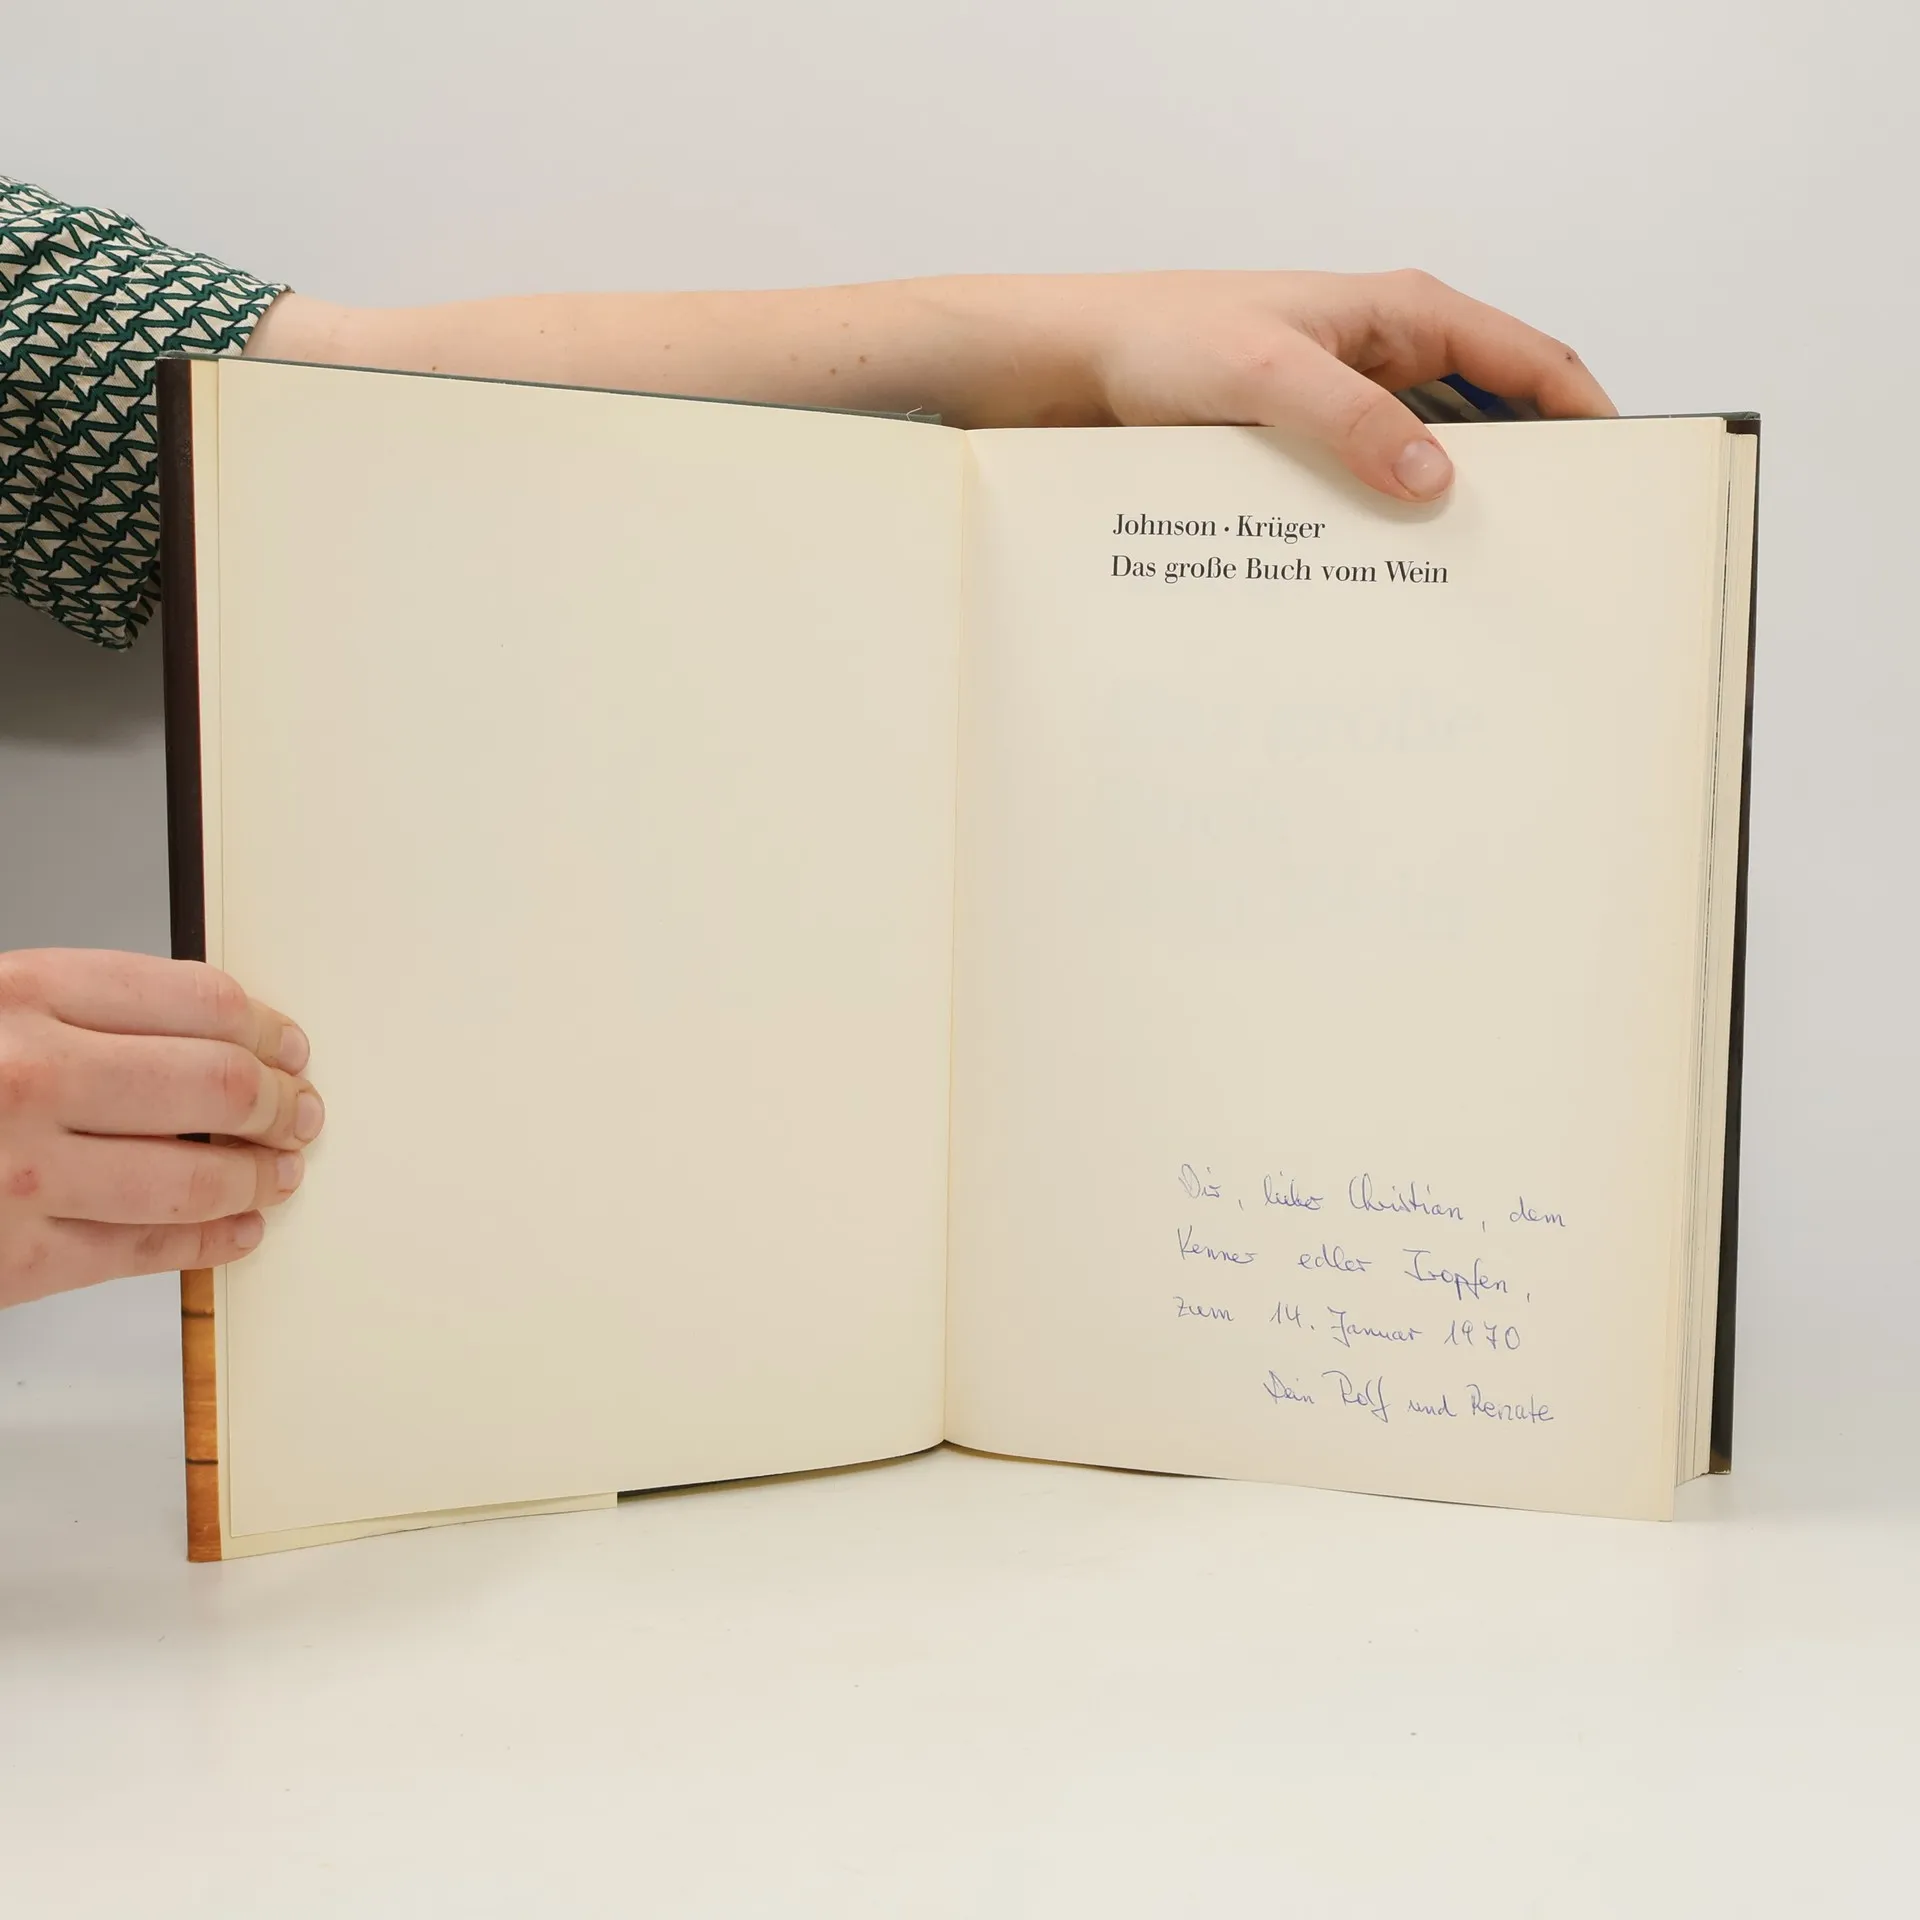 Johnson · Krüger
Das große Buch vom Wein
Dir, lieber Christian, dem
Kenner edler Tropfen,
zum 14. Januar 1970
Dein Rolf und Renate